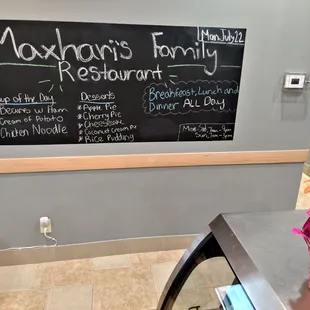 Maxhari's Family
Restaurant
Mon July 22
up of the Day
Beans w/ Ham
Cream of Potato
Chicken Noodle
Desserts
* Apple Pie
* Cherry Pie
* Cheesecake
* Coconut Cream Pie
* Rice Pudding
Breakfast, Lunch and
Dinner ALL Day
Mon-Sat
Sun